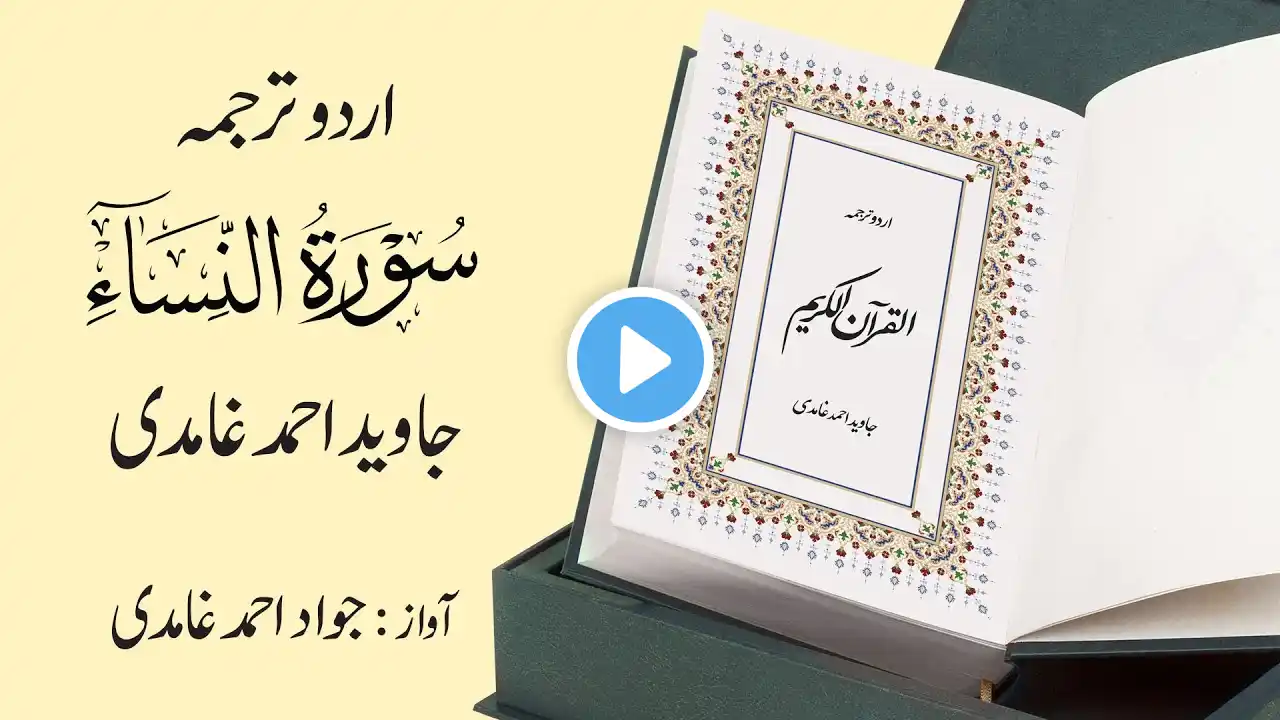 اردو ترجمہ
سُوۡرَةُ النِّسَآءِ
جاوید احمد غامدی
آواز : جواد احمد غامدی
اردو ترجمہ
القرآن الکریم
جاوید احمد غامدی